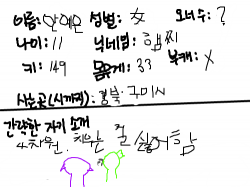 이름: 안예은 성별: 女 오너수: ?
나이: 11 닉네임: 햄찌
키: 149 몸무게: 33 북캐: X
사는곳(시까지): 경북 구미시
간략한 자기 소개
4차원. 치우는 걸 싫어함